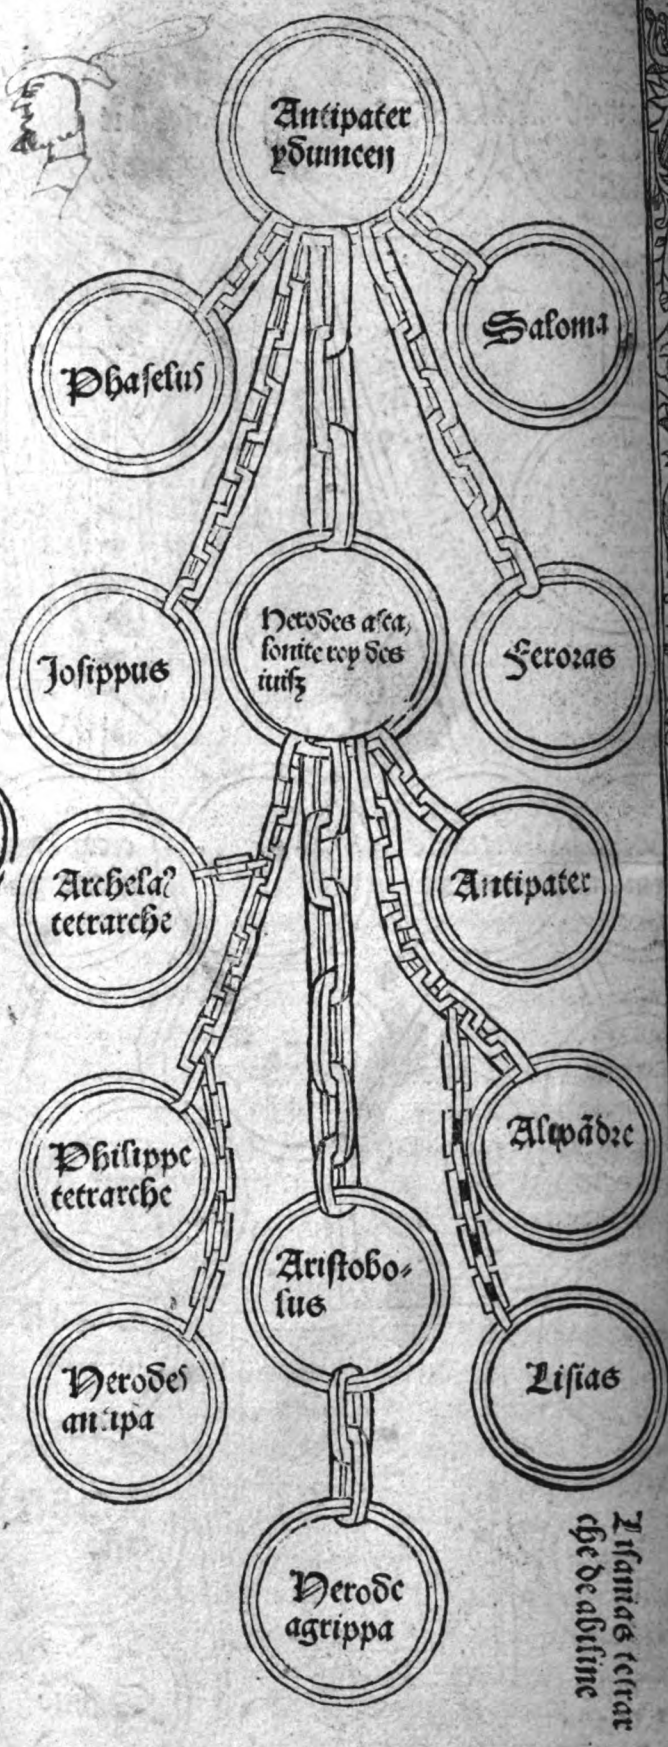 Antipater
ydumceij
Saloma
Phaselus
Josippus
Herodes asca,
lonite roy des
iuifz
Feroras
Archela9
tetrarche
Antipater
Philippe
tetrarche
Alexãdre
Aristobo-
lus
Herodes
antipa
Lisias
Herode
agrippa
Lisanias tetrar
che de abiline